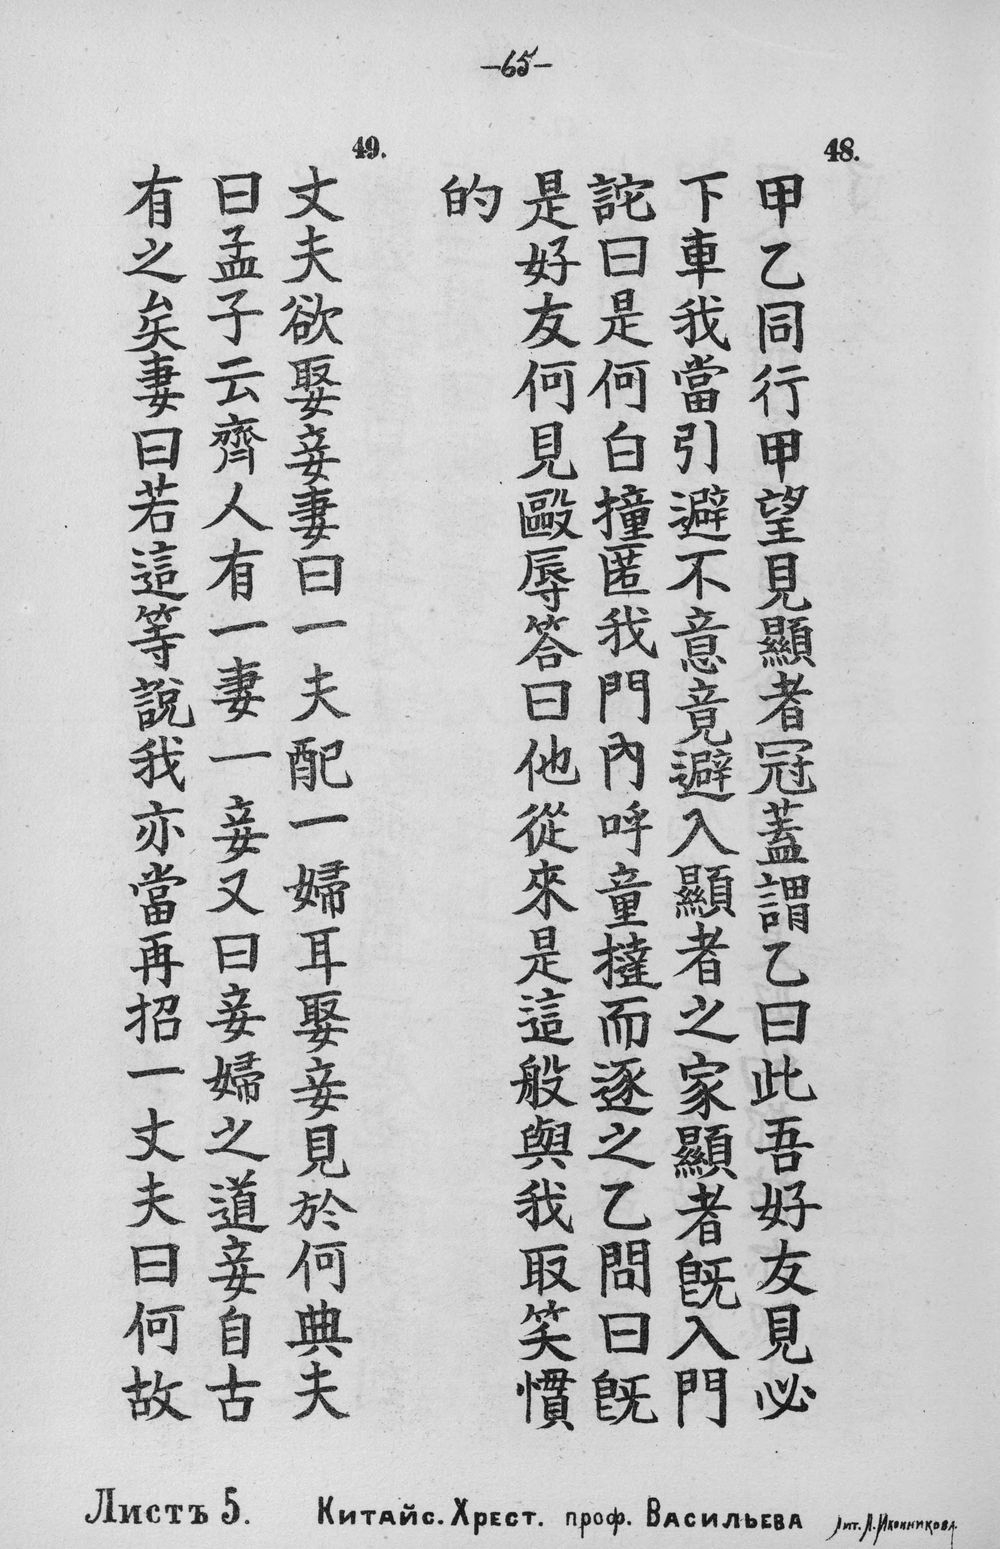 —65—
48.
甲乙同行甲望見顯者冠蓋謂乙曰此吾好友見必
下車我當引避不意竟避入顯者之家顯者旣入門
詫曰是何白撞匿我門內呼童撻而逐之乙問曰旣
是好友何見毆辱答曰他從來是這般與我取笑慣
的
49.
丈夫欲娶妾妻曰一夫配一婦耳娶妾見於何典夫
曰孟子云齊人有一妻一妾又曰妾婦之道妾自古
有之矣妻曰若這等說我亦當再招一丈夫曰何故
Листъ 5. Китайс. Хрест. проф. Васильева Лит. А. Иконникова.